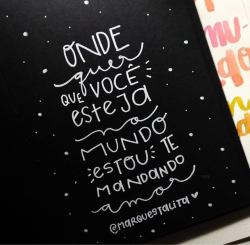 ONDE
quer
QUE VOCÊ
ESTEJA
no
MUNDO
ESTOU TE
MANDANDO
amor
@MARQUESTALITA ♥